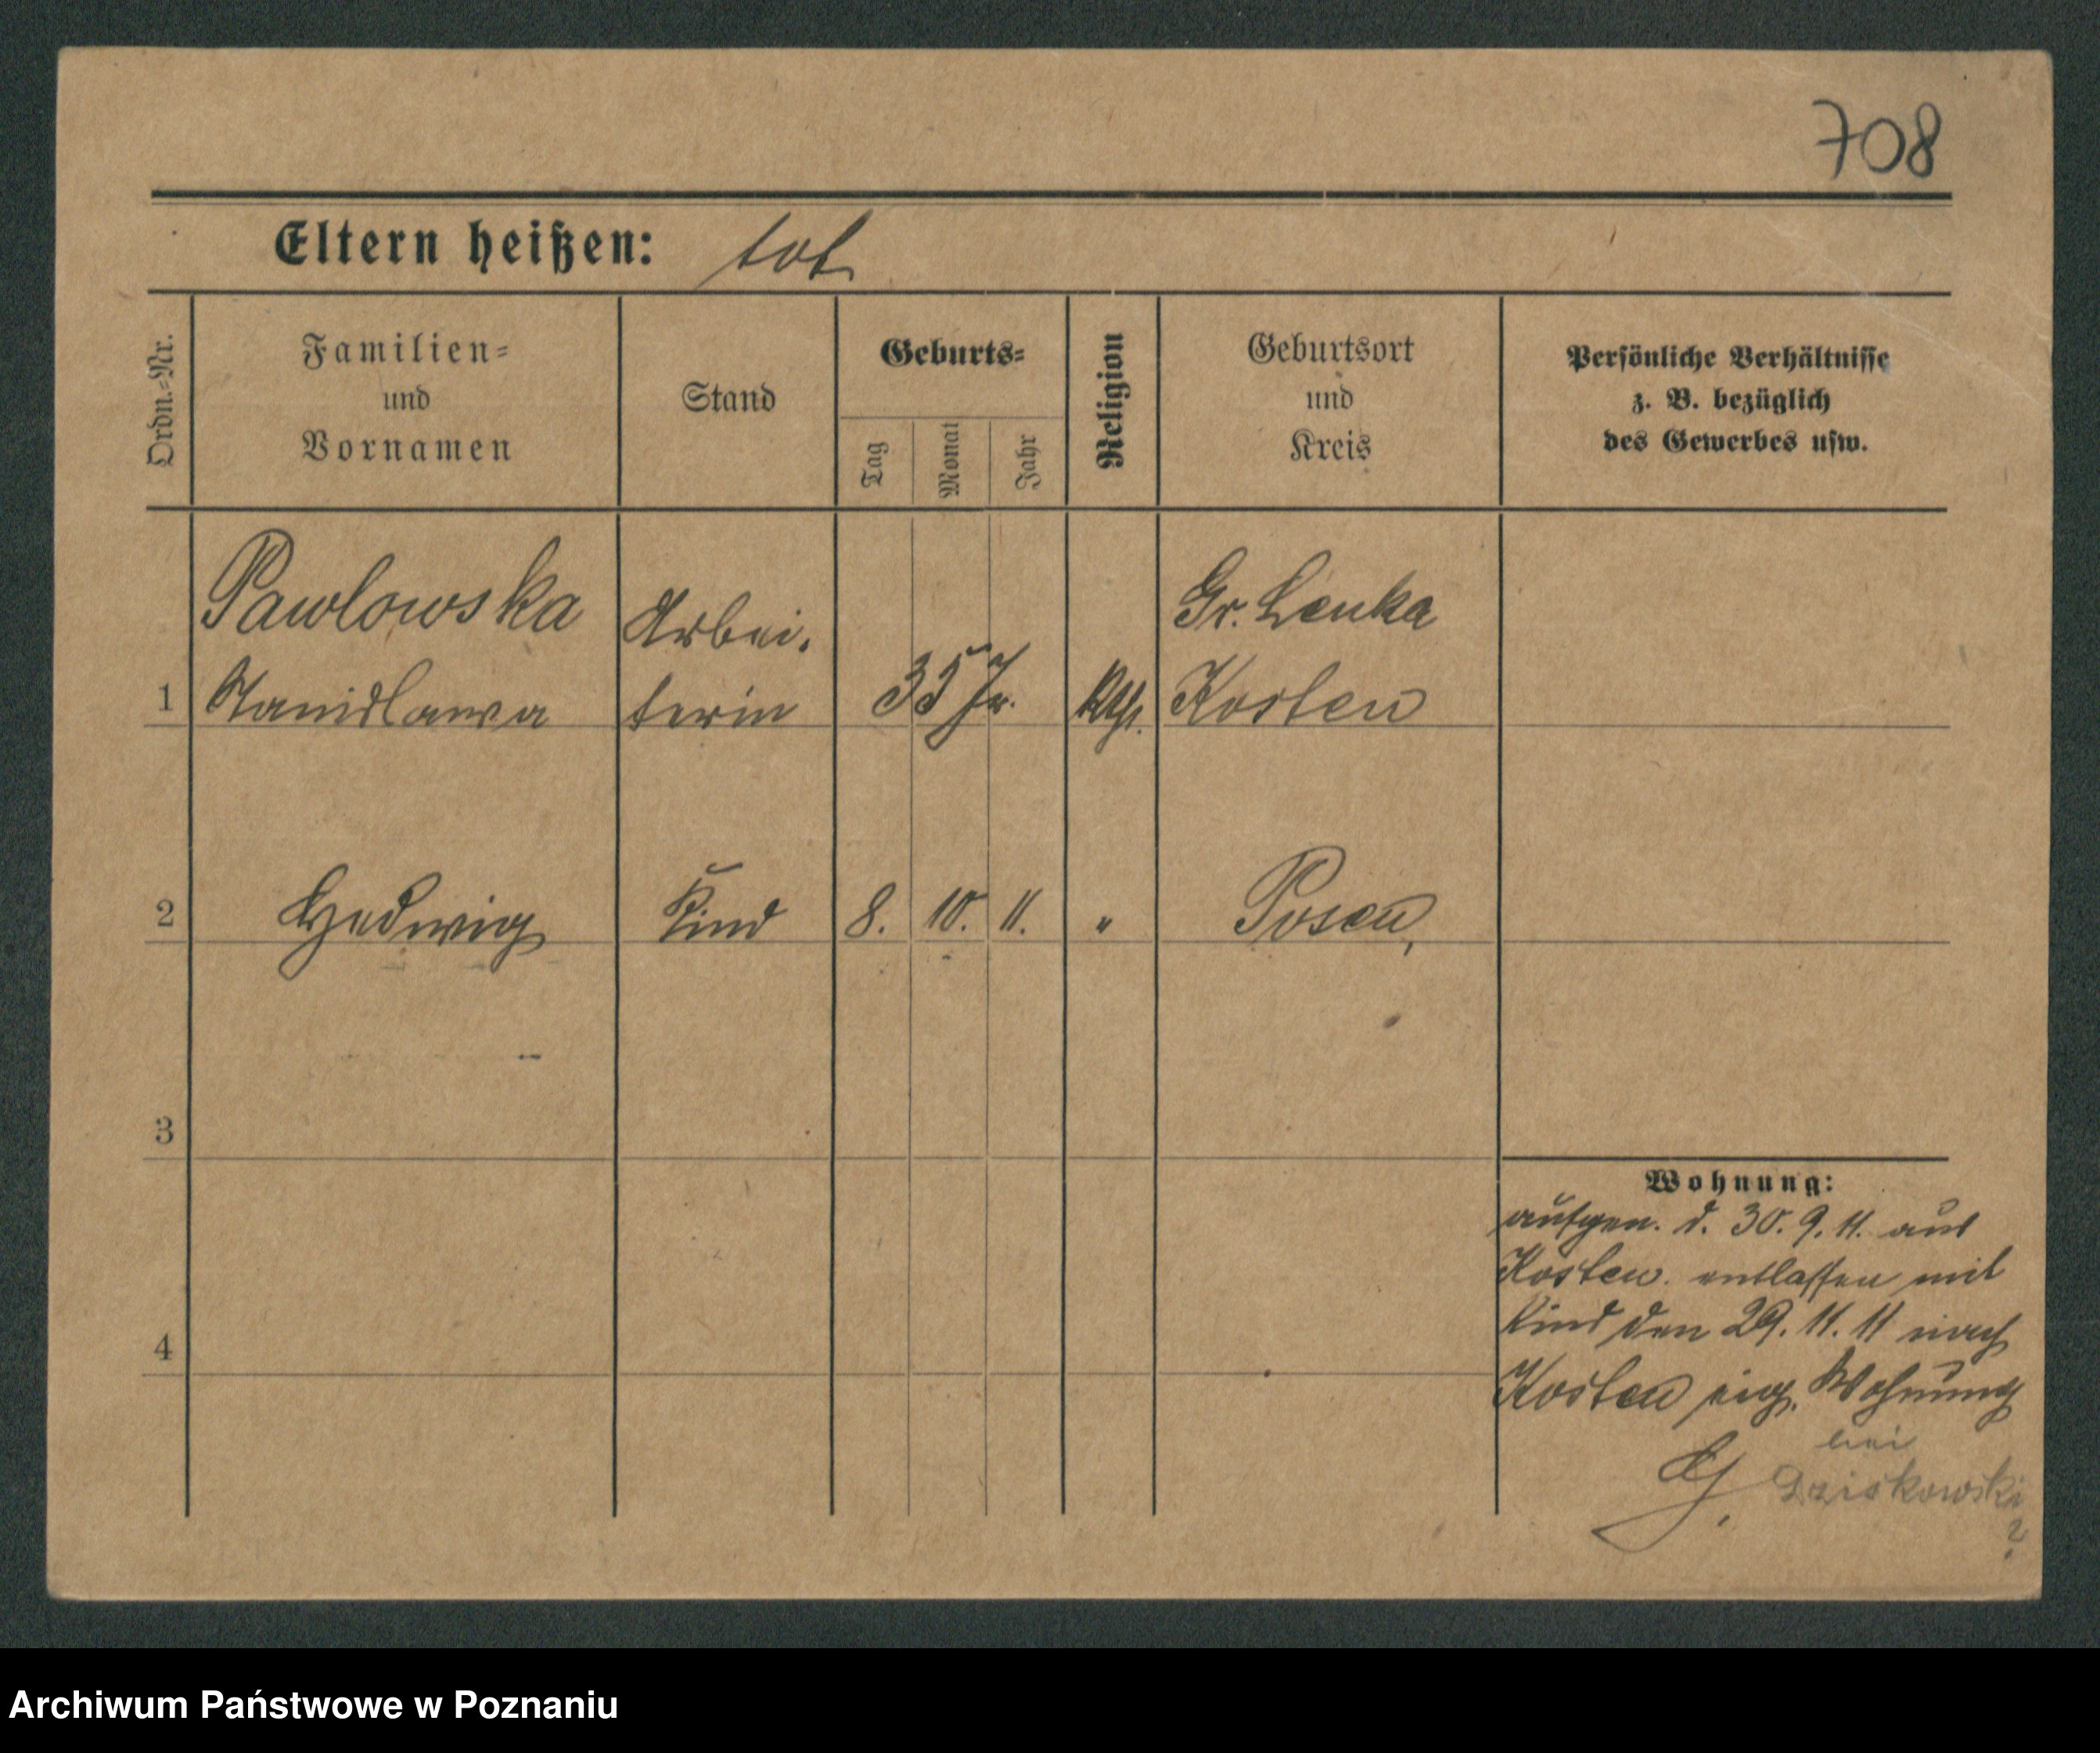 708
Eltern heißen: tot
Ordn.=Nr.
Familien=
und
Vornamen
Stand
Geburts=
Tag
Monat
Jahr
Religion
Geburtsort
und
Kreis
Persönliche Verhältnisse
z. B. bezüglich
des Gewerbes usw.
Pawlowska Arbei- Gr. Lenka
1 Stanislawa terin 35 Jr. Kth. Kosten
2 Hedwig Kind 8. 10. 11. " Posen
3
Wohnung:
aufgen. d. 30. 9. 11. aus
Kosten. entlassen mit
Kind den 29. 11. 11 nach
4
Kosten eig. Wohnung
bei
Dziskowski
?
Archiwum Państwowe w Poznaniu